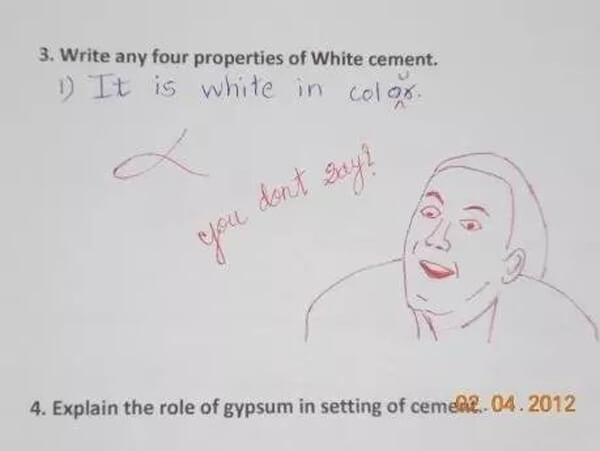 3. Write any four properties of White cement.
1) It is white in color.
u
you don't say?
4. Explain the role of gypsum in setting of cement.
02.04.2012